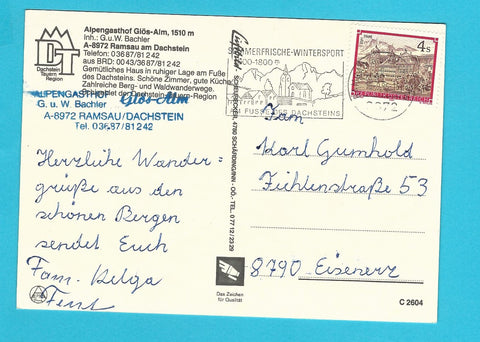 Alpengasthof Glös-Alm, 1510 m
Inh.: G. u. W. Bachler
A-8972 Ramsau am Dachstein
Telefon: 03687/81242
aus BRD: 0043/3687/81242
Gemütliches Haus in ruhiger Lage am Fuße
des Dachsteins. Schöne Zimmer, gute Küche
Zahlreiche Berg- und Waldwanderwege.
Dachstein-Tauern-Region
DT
Dachstein
Tauern
Region
ALPENGASTHOF Glös-Alm
G. u. W. Bachler
A-8972 RAMSAU/DACHSTEIN
Tel. 03687/81242
Herzliche Wander=
grüße aus den
schönen Bergen
sendet Euch
Fam. Helga
SCHÄRDING/INN - OÖ. - TEL. 0 77 12 / 23 29
Das Zeichen
für Qualität
SOMMERFRISCHE-WINTERSPORT
FUSSE DES DACHSTEINS
4 S
REPUBLIK ÖSTERREICH
Fam
Karl Gumhold
53
8790 Eisenerz
C 2604